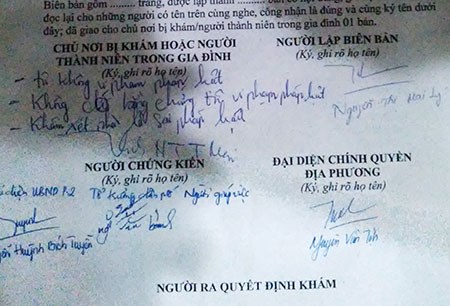 Biên bản gồm .......... trang, được lập thành
đọc lại cho những người có tên trên cùng nghe, công nhận là đúng và cùng ký tên dưới
đây; đã giao cho chủ nơi bị khám/người thành niên trong gia đình 01 bản.
CHỦ NƠI BỊ KHÁM HOẶC NGƯỜI
THÀNH NIÊN TRONG GIA ĐÌNH
(Ký, ghi rõ họ tên)
NGƯỜI LẬP BIÊN BẢN
(Ký, ghi rõ họ tên)
- tôi không vi phạm pháp luật
- Không có bằng chứng tôi vi phạm pháp luật
- Khám xét nhà là sai pháp luật
NGƯỜI CHỨNG KIẾN
(Ký, ghi rõ họ tên)
ĐẠI DIỆN CHÍNH QUYỀN
ĐỊA PHƯƠNG
(Ký, ghi rõ họ tên)
diện UBND P2 Tổ trưởng dân phố
Huỳnh Bích Tuyền
Nguyễn Văn
NGƯỜI RA QUYẾT ĐỊNH KHÁM